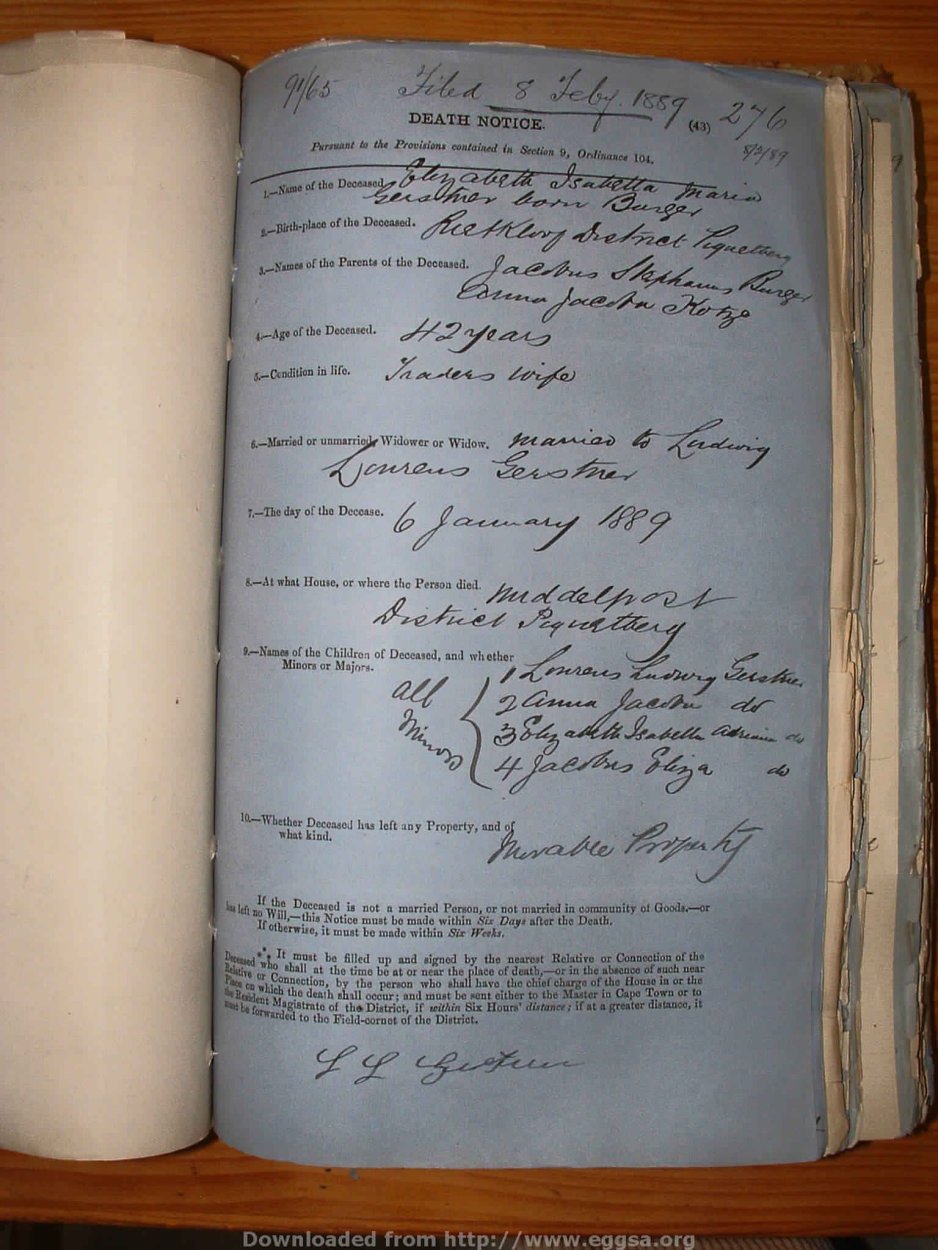 91/65 Filed 8 Feby. 1889 276
DEATH NOTICE. (43)
8/2/89
Pursuant to the Provisions contained in Section 9, Ordinance 104.
1.—Name of the Deceased Elizabeth Isabella Maria
Gerstner born Burger
2.—Birth-place of the Deceased. Rietkloof District Piquetberg
3.—Names of the Parents of the Deceased. Jacobus Stephanus Burger
Anna Jacoba Kotze
4.—Age of the Deceased. 42 years
5.—Condition in life. Traders wife
6.—Married or unmarried, Widower or Widow. Married to Ludwig
Lourens Gerstner
7.—The day of the Decease. 6 January 1889
8.—At what House, or where the Person died. Middelpost
District Piquetberg
9.—Names of the Children of Deceased, and whether
Minors or Majors.
1 Lourens Ludwig Gerstner
all 2 Anna Jacoba do
Minors 3 Elizabeth Isabella Adriana do
4 Jacobus Eliza do
10.—Whether Deceased has left any Property, and of
what kind. Movable Property
If the Deceased is not a married Person, or not married in community of Goods.—or
has left no Will,—this Notice must be made within Six Days after the Death.
If otherwise, it must be made within Six Weeks.
*** It must be filled up and signed by the nearest Relative or Connection of the
Deceased who shall at the time be at or near the place of death,—or in the absence of such near
Relative or Connection, by the person who shall have the chief charge of the House in or the
Place on which the death shall occur; and must be sent either to the Master in Cape Town or to
the Resident Magistrate of the District, if within Six Hours' distance; if at a greater distance, it
must be forwarded to the Field-cornet of the District.
L L Gerstner
Downloaded from http://www.eggsa.org